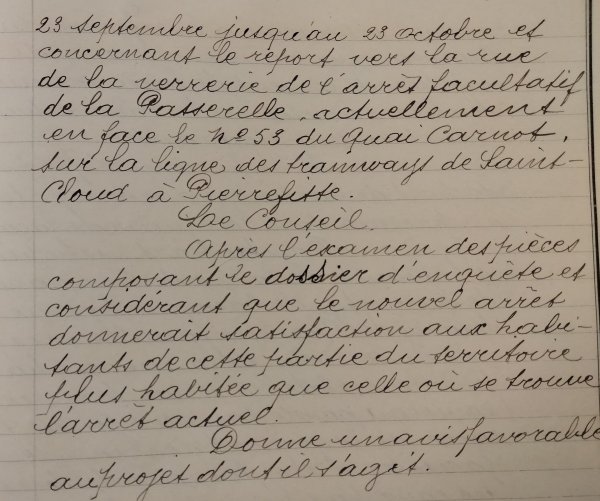 23 septembre jusqu'au 23 octobre et
concernant le report vers la rue
de la verrerie de l'arrêt facultatif
de la Passerelle, actuellement
en face le nº 53 du Quai Carnot,
sur la ligne des tramways de Saint-
Cloud à Pierrefitte.
Le Conseil.
Après l'examen des pièces
composant le dossier d'enquête et
considérant que le nouvel arrêt
donnerait satisfaction aux habi-
tants de cette partie du territoire
plus habitée que celle où se trouve
l'arrêt actuel.
Donne un avis favorable
au projet dont il s'agit.